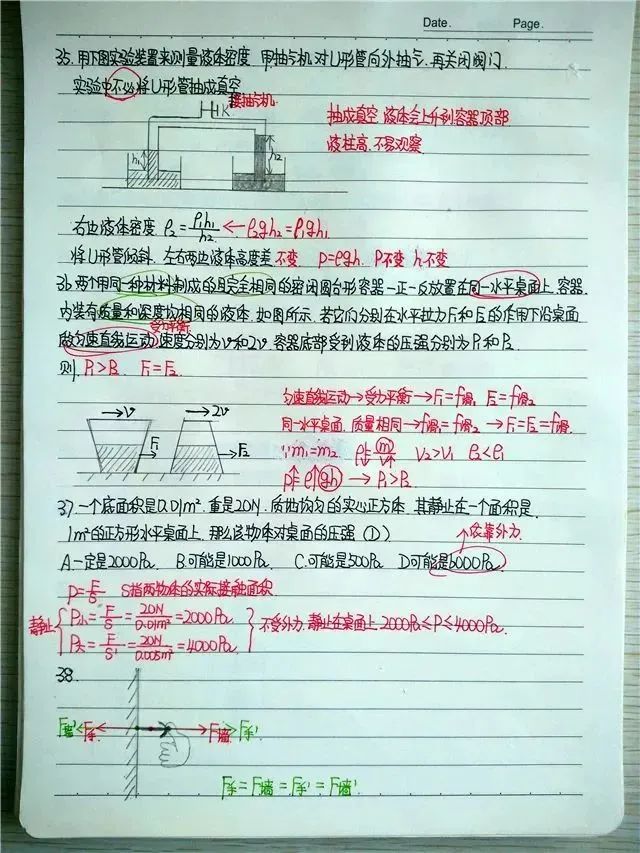 Date. Page.
35. 用下图实验装置来测量液体密度 用抽气机对U形管向外抽气.再关闭阀门.
实验中不必将U形管抽成真空
接抽气机
K
h1
h2
抽成真空 液体会上升到容器顶部
液柱高.不易观察
右边液体密度 ρ2=ρ1h1/h2 ←ρ2gh2=ρ1gh1
将U形管倾斜.左右两边液体高度差不变 P=ρgh. P不变 h不变
36.两个用同一种材料制成的且完全相同的密闭圆台形容器一正一反放置在同一水平桌面上.容器.
内装有质量和深度均相同的液体.如图所示.若它们分别在水平拉力F1和F2的作用下沿桌面
受力平衡
做匀速直线运动.速度分别为v和2v.容器底部受到液体的压强分别为P1和P2.
则 P1>P2. F1=F2.
v
2v
F1
F2
匀速直线运动→受力平衡→F1=f滑1 F2=f滑2
同一水平桌面.质量相同→f滑1=f滑2 → F1=F2=f滑
∵m1=m2. ρ↓=m/V↑ V2>V1 ρ2<ρ1
P↑=ρ↑gh → P1>P2
37.一个底面积是0.01m².重是20N.质地均匀的实心正方体.其静止在一个面积是
1m²的正方形水平桌面上.那么该物体对桌面的压强(D)
依靠外力.
A.一定是2000Pa. B.可能是1000Pa. C.可能是500Pa D.可能是6000Pa
P=F/S S指两物体的实际接触面积
静止 P小=F/S=20N/0.01m²=2000Pa
P大=F/S'=20N/0.005m²=4000Pa
不受外力.静止在桌面上 2000Pa≤P≤4000Pa.
38.
F墙' F手 F墙 F手'
F手=F墙=F手'=F墙'